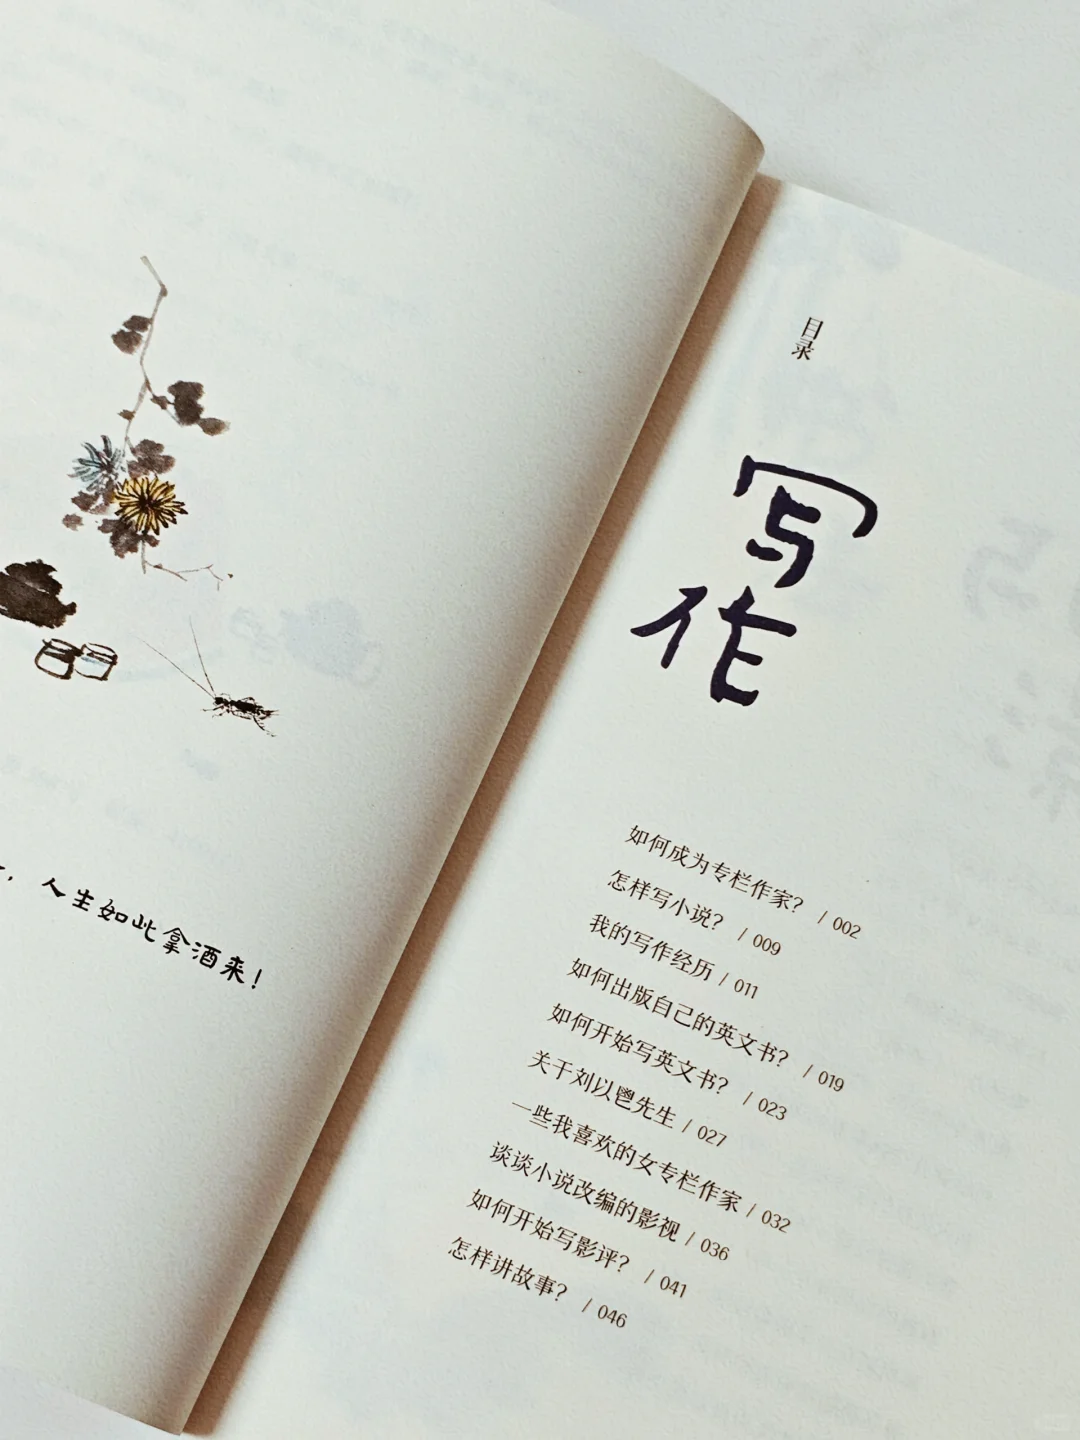 ，人生如此拿酒来！
目录
写作
如何成为专栏作家？ / 002
怎样写小说？ / 009
我的写作经历 / 011
如何出版自己的英文书？ / 019
如何开始写英文书？ / 023
关于刘以鬯先生 / 027
一些我喜欢的女专栏作家 / 032
谈谈小说改编的影视 / 036
如何开始写影评？ / 041
怎样讲故事？ / 046